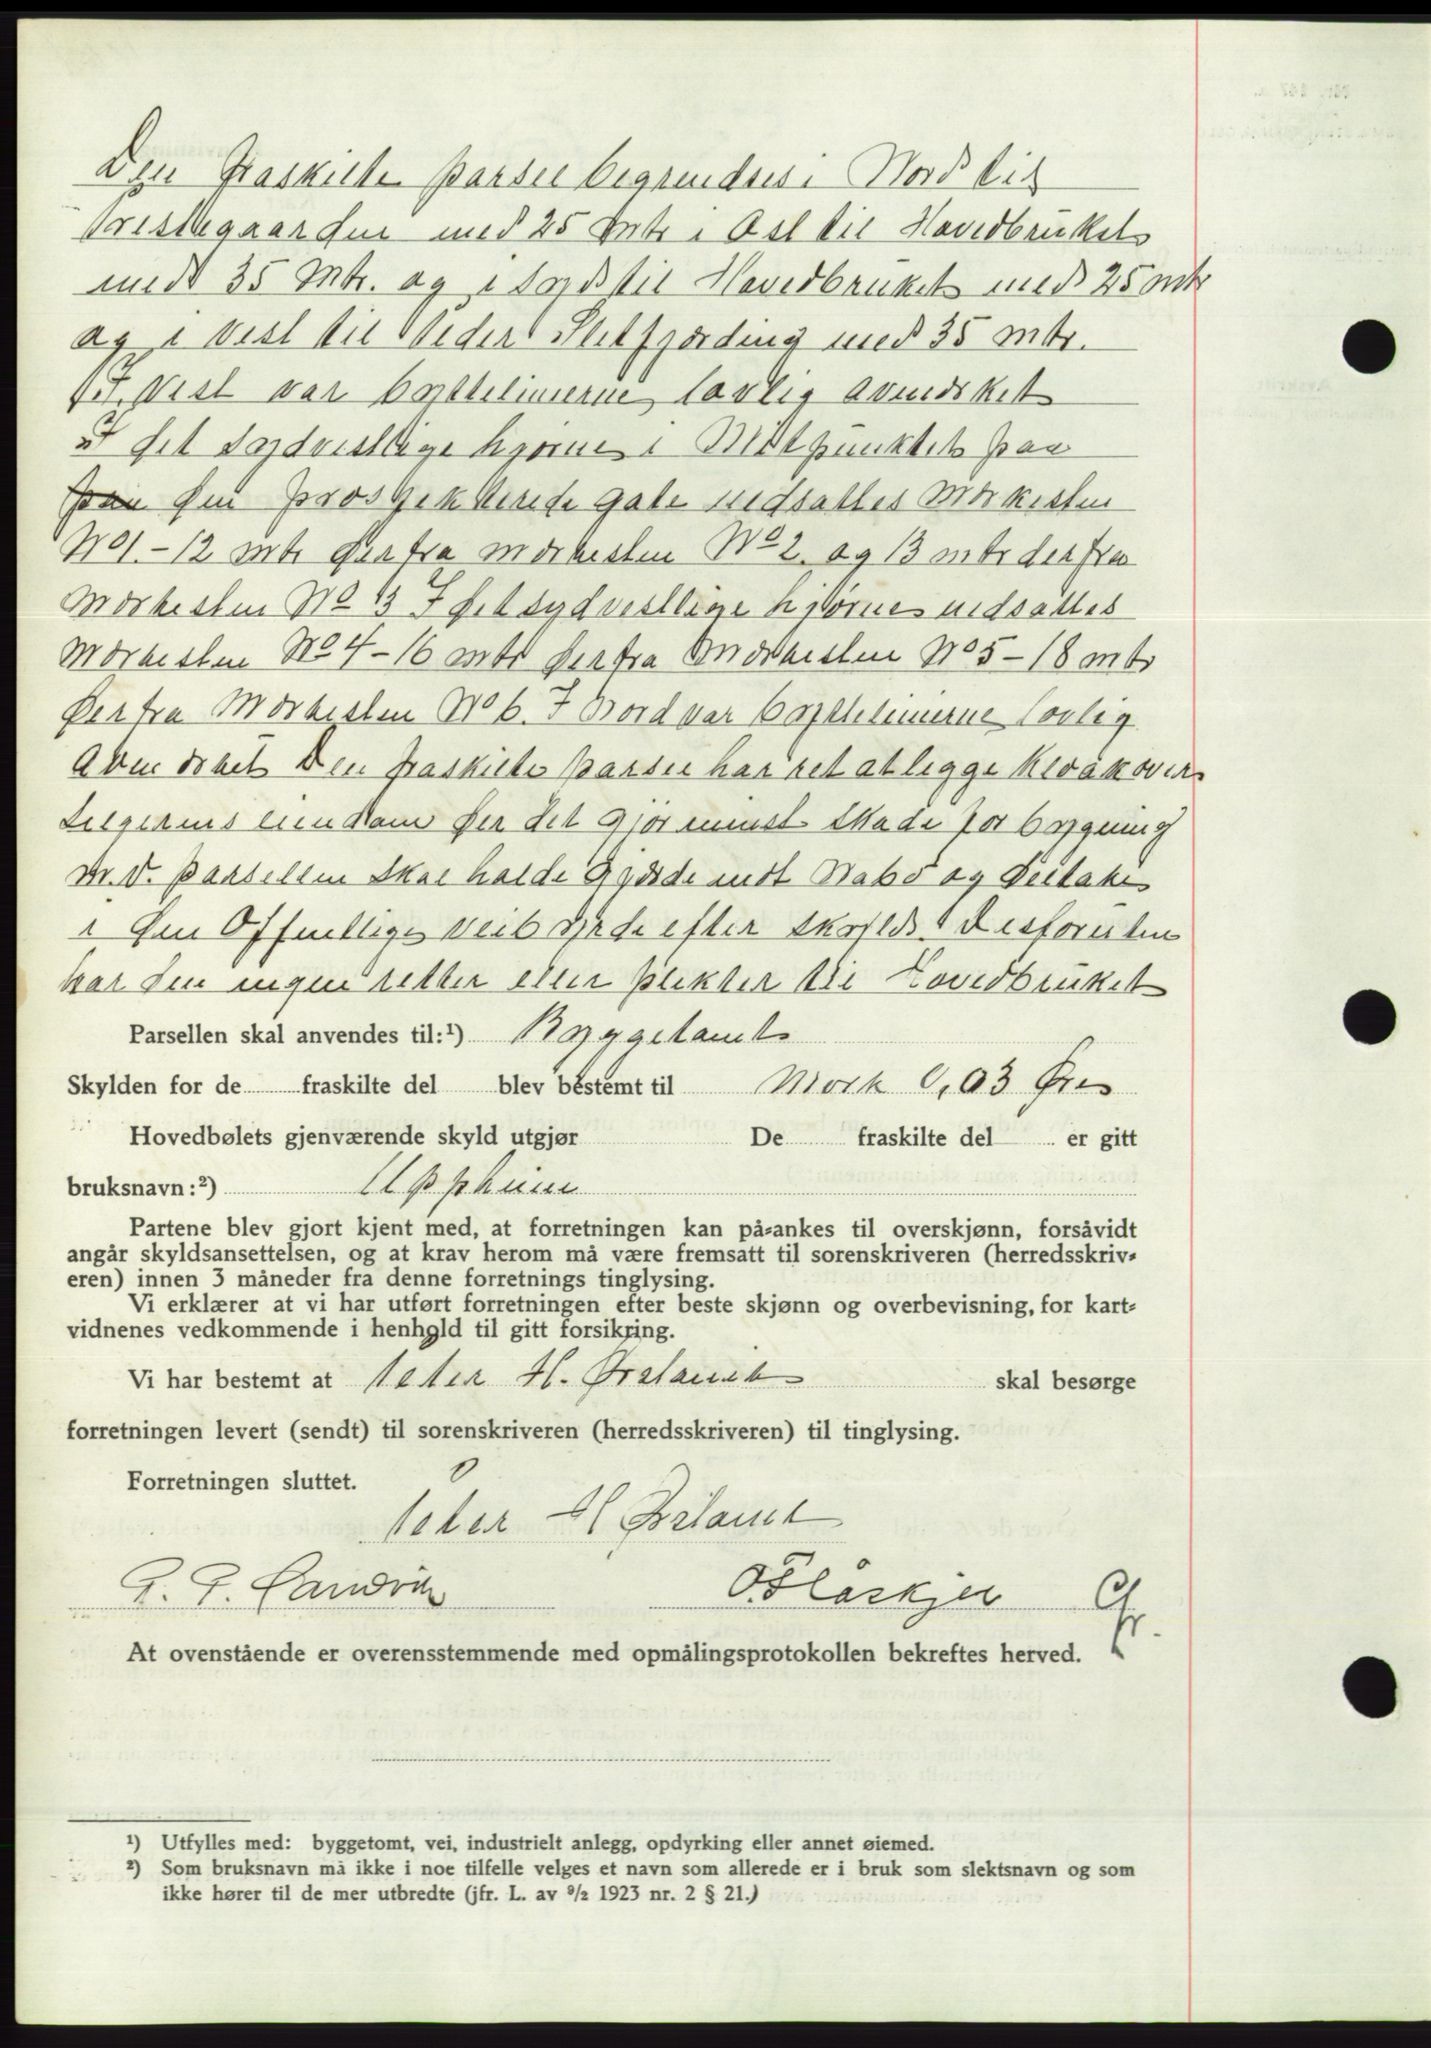 Den fraskilte parsel begrendses i Nord til
Prestegaarden med 25 mtr i Ost til Hovedbruket
med 35 Mtr. og i Syd til Hovedbruket med 25 mtr
og i vest til Peder Sletfjording med 35 mtr.
I. Vest var byttelinierne lovlig avmerket
I det Sydvestlige hjorne i Mitpunktet paa
paa den prosjekterede gate nedsattes Merkesten
No 1. - 12 mtr derfra merkesten No 2. og 13 mtr derfra
Merkesten No 3 I det sydvestlige hjorne nedsattes
Merkesten No 4 - 16 mtr derfra Merkesten No 5 - 18 mtr
derfra Merkesten No 6. I Nord var byttelinierne lovlig
avmerket Den fraskilte parsel har ret at legge kloak over
selgerens eiendom der det gjør minst skade for bygning
m.v. parsellen skal holde gjerde mot Nabo og deltake
i den Offentlige veibyrde efter skyld. Desforuten
har den ingen retter eller plikter til Hovedbruket
Parsellen skal anvendes til:¹) Byggetomt
Skylden for de fraskilte del blev bestemt til Mork 0,03 Øre
Hovedbølets gjenværende skyld utgjør De fraskilte del er gitt
bruksnavn:²) Uppheim
Partene blev gjort kjent med, at forretningen kan på-ankes til overskjønn, forsåvidt
angår skyldsansettelsen, og at krav herom må være fremsatt til sorenskriveren (herredsskriv-
eren) innen 3 måneder fra denne forretnings tinglysing.
Vi erklærer at vi har utført forretningen efter beste skjønn og overbevisning, for kart-
vidnenes vedkommende i henhold til gitt forsikring.
Vi har bestemt at Peter H. Ørslavik skal besørge
forretningen levert (sendt) til sorenskriveren (herredsskriveren) til tinglysing.
Forretningen sluttet.
Peter H
P. P. Landvik O. Flåskjer
At ovenstående er overensstemmende med opmålingsprotokollen bekreftes herved.
¹) Utfylles med: byggetomt, vei, industrielt anlegg, opdyrking eller annet øiemed.
²) Som bruksnavn må ikke i noe tilfelle velges et navn som allerede er i bruk som slektsnavn og som
ikke hører til de mer utbredte (jfr. L. av ⁹/₂ 1923 nr. 2 § 21.)